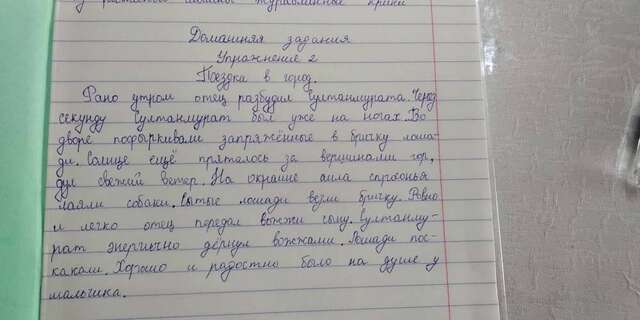 журавлиные крики
Домашняя задания
Упражнение 2
Поездка в город.
Рано утром отец разбудил Султанмурата. Через
секунду Султанмурат был уже на ногах. Во
дворе пофыркивали запряжённые в бричку лоша-
ди. Солнце ещё пряталось за вершинами гор,
дул свежий ветер. На окраине аила спросонья
лаяли собаки. Сытые лошади везли бричку. Ровно
и легко отец передал вожжи сыну. Султанму-
рат энергично дёрнул вожжами. Лошади пос-
какали. Хорошо и радостно было на душе у
мальчика.